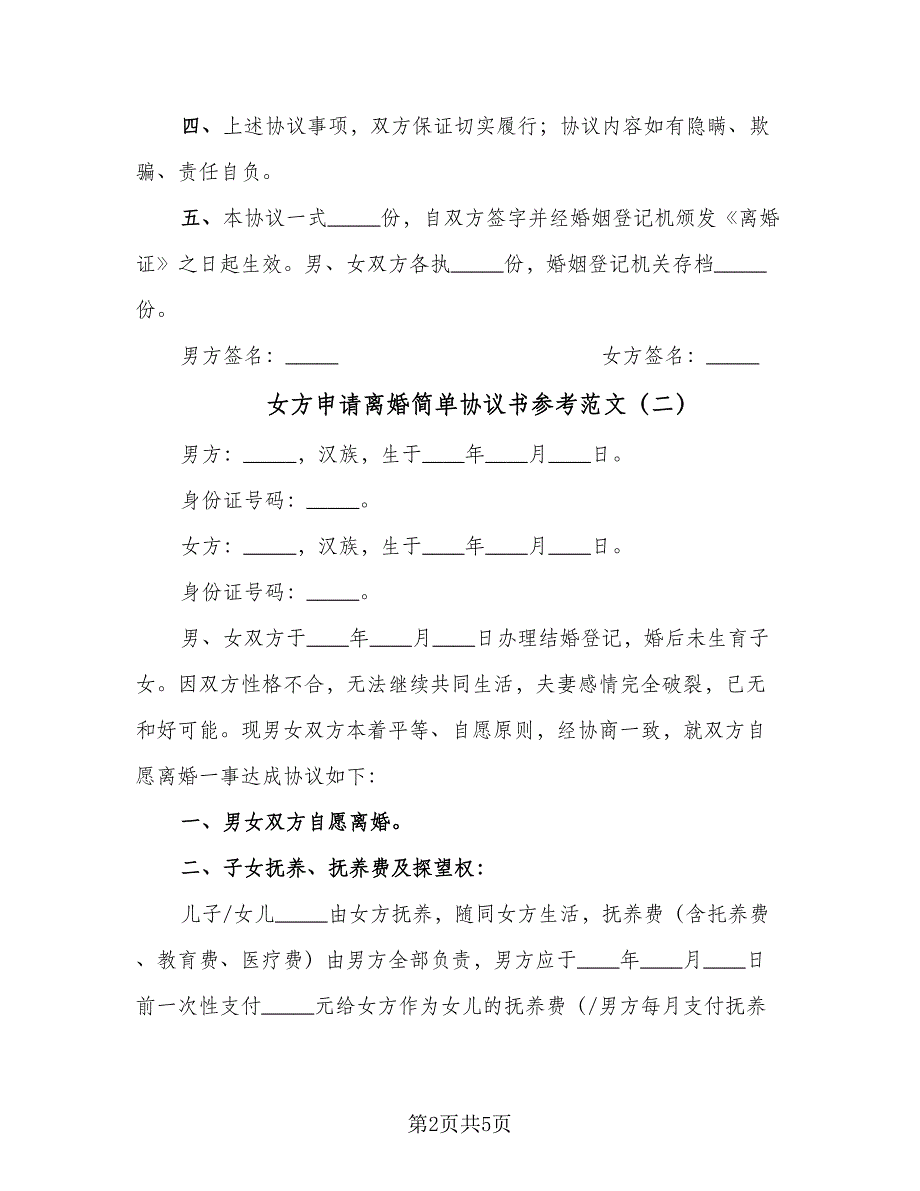 四、上述协议事项，双方保证切实履行；协议内容如有隐瞒、欺
骗、责任自负。
五、本协议一式_____份，自双方签字并经婚姻登记机颁发《离婚
证》之日起生效。男、女双方各执_____份，婚姻登记机关存档_____
份。
男方签名：_____ 女方签名：_____
女方申请离婚简单协议书参考范文（二）
男方：_____，汉族，生于____年____月____日。
身份证号码：_____。
女方：_____，汉族，生于____年____月____日。
身份证号码：_____。
男、女双方于____年____月____日办理结婚登记，婚后未生育子
女。因双方性格不合，无法继续共同生活，夫妻感情完全破裂，已无
和好可能。现男女双方本着平等、自愿原则，经协商一致，就双方自
愿离婚一事达成协议如下：
一、男女双方自愿离婚。
二、子女抚养、抚养费及探望权：
儿子/女儿_____由女方抚养，随同女方生活，抚养费（含托养费
、教育费、医疗费）由男方全部负责，男方应于____年____月____日
前一次性支付_____元给女方作为女儿的抚养费（/男方每月支付抚养
第2页共5页